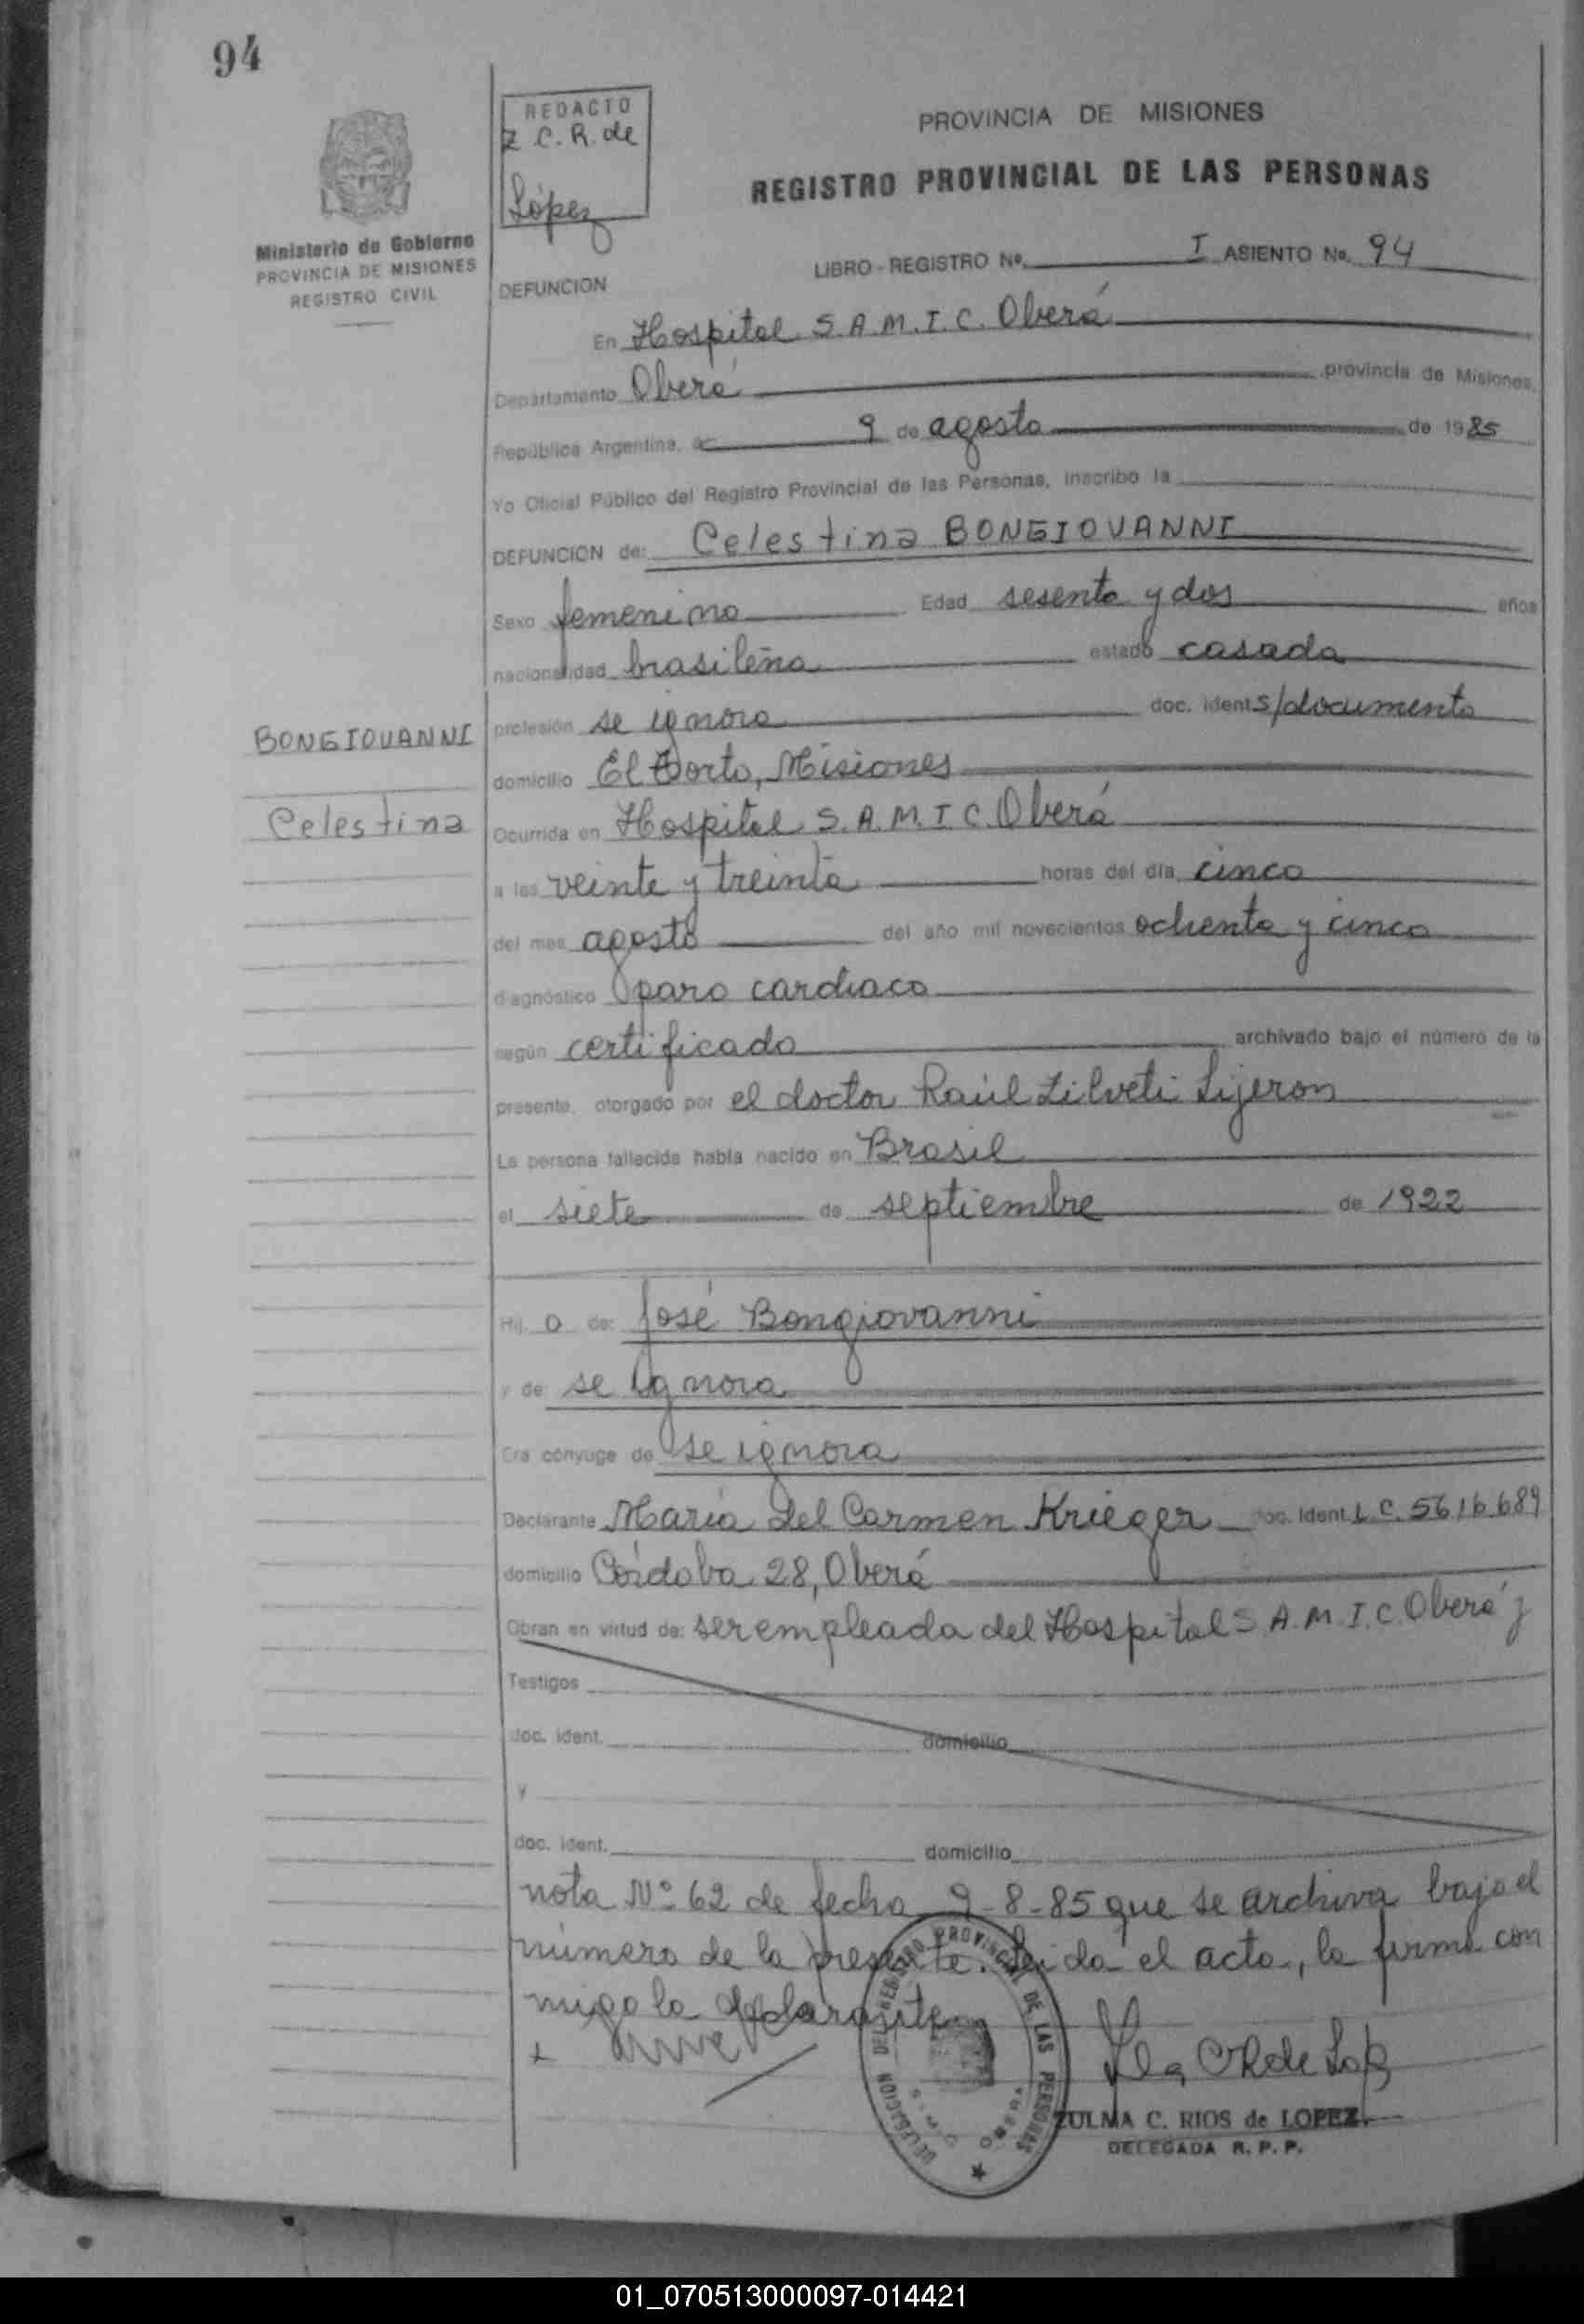 94
REDACTO
Z C. R. de
López
Ministerio de Gobierno
PROVINCIA DE MISIONES
REGISTRO CIVIL
PROVINCIA DE MISIONES
REGISTRO PROVINCIAL DE LAS PERSONAS
LIBRO - REGISTRO Nº. I ASIENTO No. 94
DEFUNCION
En Hospital S.A.M.I.C. Oberá
Departamento Oberá provincia de Misiones,
República Argentina, a 9 de agosto de 1985
Yo Oficial Público del Registro Provincial de las Personas, inscribo la
DEFUNCION de: Celestina BONGIOVANNI
Sexo femenino Edad sesenta y dos años
nacionalidad brasileña estado casada
profesión se ignora doc. ident s/documento
BONGIOVANNI
domicilio El Porto, Misiones
Celestina
Ocurrida en Hospital S.A.M.I C. Oberá
a las veinte y treinta horas del día cinco
del mes agosto del año mil novecientos ochenta y cinco
diagnóstico paro cardiaco
según certificado archivado bajo el número de la
presente, otorgado por el doctor Raúl Zilveti Lijeron
La persona fallecida había nacido en Brasil
el siete de septiembre de 1922
Hij. a de: José Bongiovanni
y de se ignora
Era cónyuge de se ignora
Declarante María Del Carmen Krieger doc. Ident. L.C. 5616689
domicilio Córdoba 28, Oberá
Obran en virtud de: ser empleada del Hospital S.A.M.I.C. Oberá y
Testigos
doc. ident. domicilio
y
doc. ident. domicilio
nota Nº 62 de fecha 9-8-85 que se archiva bajo el
número de la presente. Leida el acta, la firma con
migo la declarante.
DELEGACION DEL REGISTRO PROVINCIAL DE LAS PERSONAS
OBERA
ZULMA C. RIOS de LOPEZ
DELEGADA R. P. P.
01_070513000097-014421